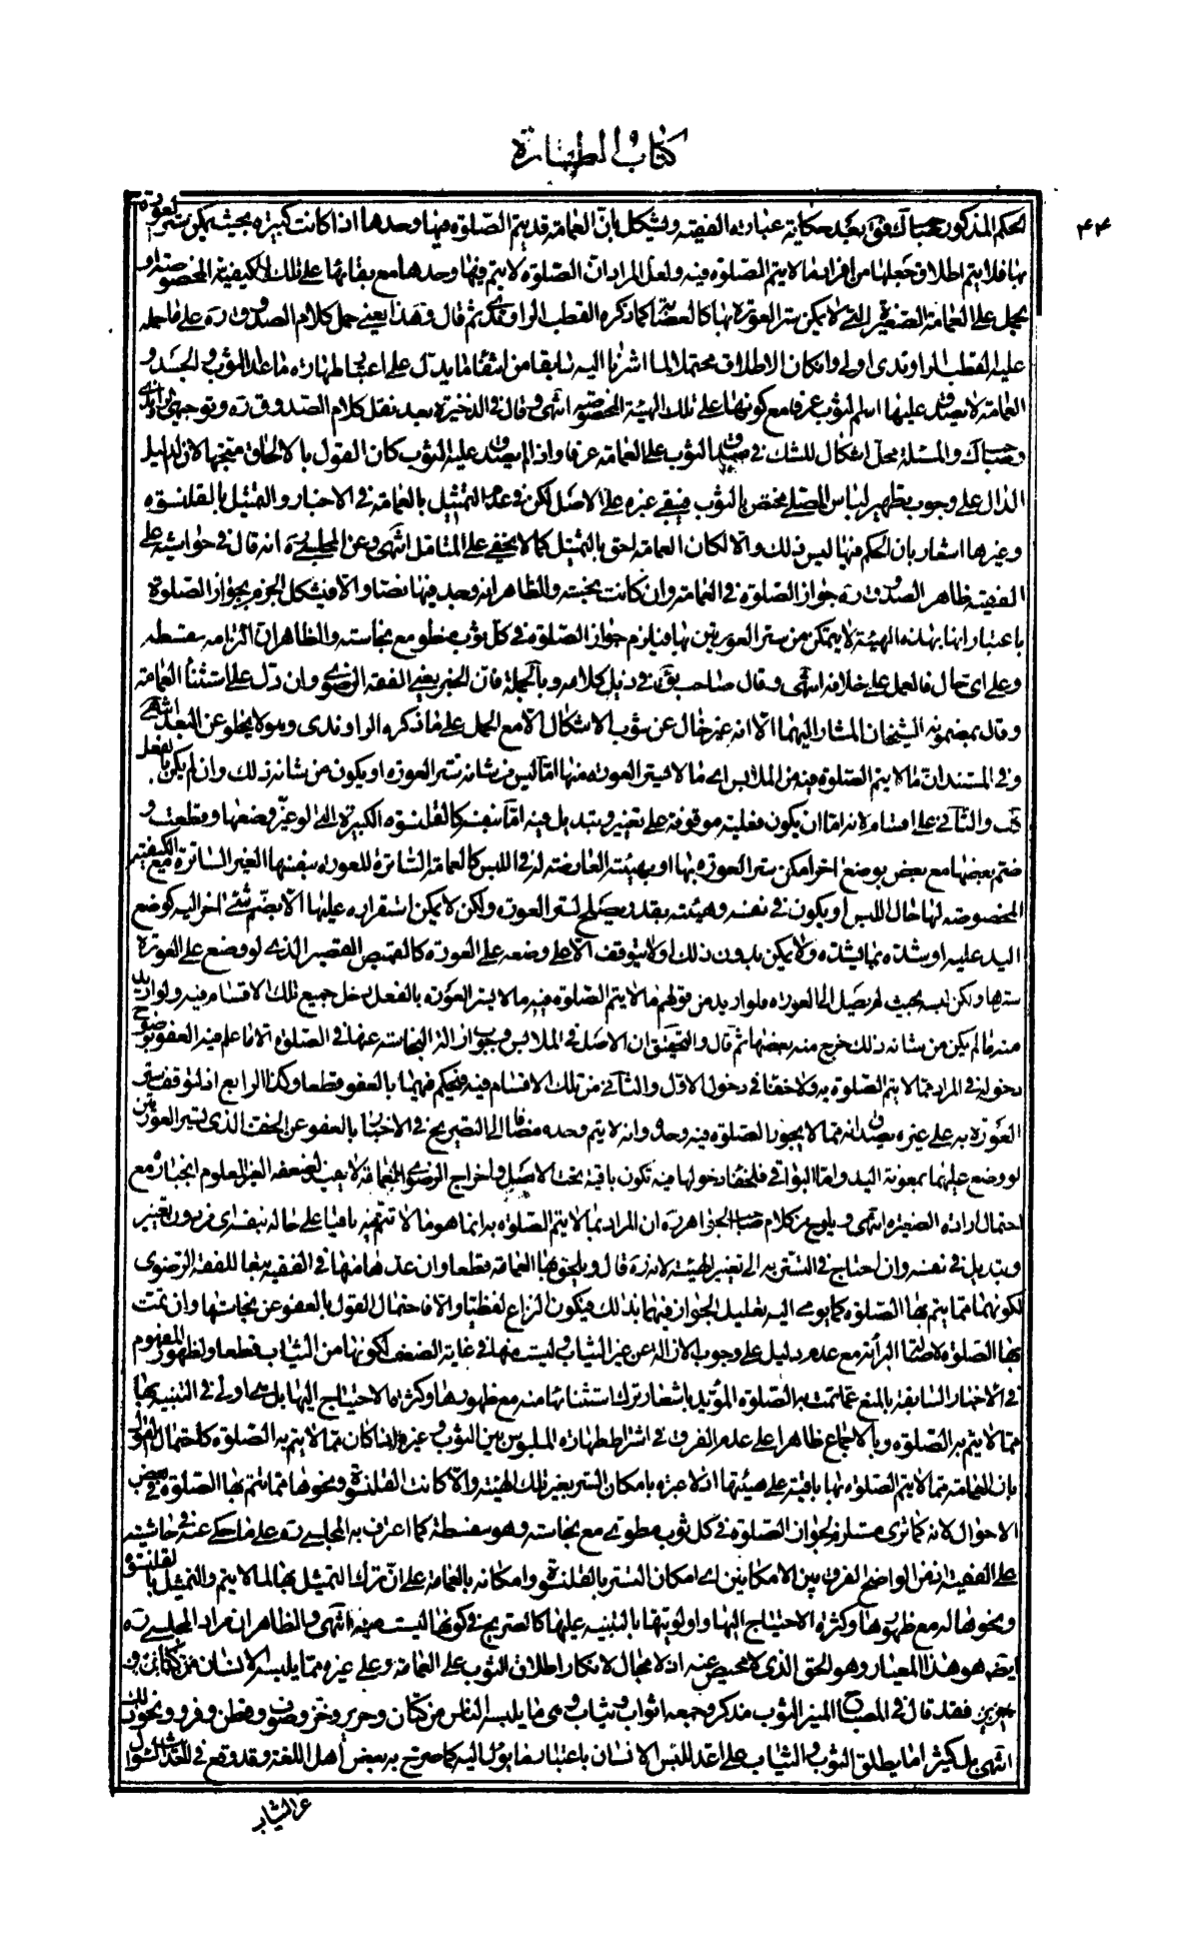 كتاب الطهارة
٤٣
الحكم المذكور صاحب لك فق بعد حكاية عبارة الفقيه ويشكل بان العمامة قد يتم الصلوة فيها وحدها اذا كانت كبيرة بحيث يمكن ستر العورة
بها فلا يتم اطلاق جعلها من افراد ما لا يتم الصلوة فيه ولعل المراد ان الصلوة لا يتم فيها وحدها مع بقائها على تلك الكيفية المخصوصة او
يحمل على العمامة الصغيرة التي لا يمكن ستر العورة بها كالعصابة كما ذكره القطب الراوندى ثم قال وهذا يعني حمل كلام الصدوق ره على ما حمله
عليه القطب الراوندى اولى وان كان الاطلاق محتملا لما اشرنا اليه سابقا من انتفاء ما يدل على اعتبار طهارة ما عدا الثوب والجسد و
العمامة لا يصدق عليها اسم الثوب عرفا مع كونها على تلك الهيئة المخصوصة انتهى وقال في الذخيرة بعد نقل كلام الصدوق ره وتوجيهى
والمسئلة محل اشكال للشك في صدق الثوب على العمامة عرفا واذا لم يصدق عليه الثوب كان القول بالالحاق متجها لان الدليل
الدال على وجوب تطهير لباس المصلى مختص بالثوب فيبقى غيره على الاصل لكن في عدم التمثيل بالعمامة في الاخبار والتمثيل بالقلنسوة
وغيرها اشعار بان الحكم فيها ليس ذلك والا لكان العمامة احق بالتمثيل كما لا يخفى على المتامل انتهى وعن المجلسي ره انه قال في حواشيه على
الفقيه ظاهر الصدوق ره جواز الصلوة في العمامة وان كانت نجسة والظاهر انه وجد فيها نصا والا فيشكل الجزم بجواز الصلوة
باعتبار انها بهذه الهيئة لا يتمكن من ستر العورتين بها فيلزم جواز الصلوة في كل ثوب مطوي مع نجاسته والظاهر ان التزامه سفسطه
وعلى اى حال فالعمل على خلافه انتهى وقال صاحب ئق في ذيل كلامه وبالجملة فان الخبر يعني الفقه الرضوي وان دل على استثناء العمامة
وقال بمضمونه الشيخان المشار اليهما الا انه غير خال عن شوب الاشكال الا مع الحمل على ما ذكره الراوندى وهو لا يخلو عن البعد انتهى
وفي المستند ان ما لا يتم الصلوة فيه من الملابس اى ما لا يستر العورة منها اما ليس من شانه ستر العورة او يكون من شانه ذلك وان لم يكن بالفعل
كك والثاني على اقسام لانه اما ان يكون فعليته موقوفة على تغيير وتبديل فيه اما بنفسه كالقلنسوة الكبيرة التي لو غير وضعها وقطعت و
ضم بعضها مع بعض بوضع اخر امكن ستر العورة بها او بهيئته العارضة له في اللبس كالعمامة الساترة للعورة بنفسها الغير الساترة مع الكيفية
المخصوصة لها حال اللبس او يكون في نفسه وهيئته بقدر يصلح لستر العورة ولكن لا يمكن استقراره عليها الا بضم شئ اخر اليه كوضع
اليد عليه او شده بما يشده ولا يمكن بدون ذلك او لا يتوقف الا على وضعه على العورة كالقميص القصير الذي لو وضع على العورة
سترها ولكن لبسه بحيث لم يصل الى العورة فلو اريد من قولهم ما لا يتم الصلوة فيه ما لا يستر العورة بالفعل دخل جميع تلك الاقسام فيه ولو اريد
منه ما لم يكن من شانه ذلك خرج منه بعضها ثم قال والتحقيق ان الاصل في الملابس وجوب ازالة النجاسة عنها في الصلوة الا ما علم فيه العفو بوضوح
دخوله في المراد مما لا يتم الصلوة به ولا خفاء في دخول الاول والثاني من تلك الاقسام فيه فيحكم فيهما بالعفو قطعا وكذا الرابع اذ لتوقف ستر
العورة به على غيره يصدق انه مما لا يجوز الصلوة فيه وحده وانه لا يتم وحده مضافا الى التصريح في الاخبار بالعفو عن الخف الذي يستر العورتين
لو وضع عليهما بمعونة اليد واما البواقي فلخفاء دخولها فيه تكون باقية تحت الاصل واخراج الرضوي العمامة لا يفيد لضعفه الغير المعلوم انجباره مع
احتمال ارادة الصغيرة انتهى ويلوح من كلام صاحب الجواهر ره ان المراد بما لا يتم الصلوة به انما هو ما لا تتم به باقيا على حاله بنفسه اى من دون تغيير
وتبديل في نفسه وان احتاج في الستر به الى تغيير الهيئة لانه ره قال ويلحق بها العمامة قطعا وان عدها منها في الفقيه تبعا للفقه الرضوى
لكونهما مما يتم بها الصلوة كما يومى اليه تعليل الجواز فيهما بذلك فيكون النزاع لفظيا والا فاحتمال القول بالعفو عن نجاستها وان تمت
بها الصلوة لاصالة البرائة مع عدم دليل على وجوب الازالة عن غير الثياب وليست منها في غاية الضعف لكونها من الثياب قطعا ولظهور المفهوم
في الاخبار السابقة بالمنع عما تمت به الصلوة المؤيد باشعار ترك استثنائها منه مع ظهورها وكثرة الاحتياج اليها بل هى اولى في التنبيه بها
مما لا يتم به الصلوة وبالاجماع ظاهرا على عدم الفرق في اشتراط طهارة الملبوس بين الثوب وغيره اذا كان مما لا يتم به الصلوة كاحتمال القول
بان العمامة مما لا يتم الصلوة بها باقية على هيئتها اذ لا عبرة بامكان الستر بغير تلك الهيئة والا كانت القلنسوة ونحوها مما يتم بها الصلوة في بعض
الاحوال لانه كما ترى مستلزم لجواز الصلوة في كل ثوب مطوى مع نجاسته وهو سفسطة كما اعترف به المجلسي ره على ما حكى عنه في حاشيته
على الفقيه اذ من الواضح الفرق بين الامكانين اى امكان الستر بالقلنسوة وامكانه بالعمامة على ان ترك التمثيل بها لما لا يتم والتمثيل بالقلنسوة
ونحوها له مع ظهورها وكثرة الاحتياج اليها واولويتها بالتنبيه عليها كالصريح في كونها ليست منه انتهى والظاهر ان مراد المجلسي ره
ايضه هو هذا المعيار وهو الحق الذي لا محيص عنه اذ لا مجال لانكار اطلاق الثوب على العمامة وعلى غيره مما يلبسه الانسان من كتان و
حرير فقد قال في المصباح المنير الثوب مذكر وجمعه اثواب وثياب وهى ما يلبسه الناس من كتان وحرير وخز وصوف وقطن وفرو ونحو ذلك
انتهى بل كثيرا ما يطلق الثوب والثياب على ما اعد للبس الانسان باعتبار ما يؤل اليه كما صرح به بعض اهل اللغة وقد وقع في السؤال
عن الثياب